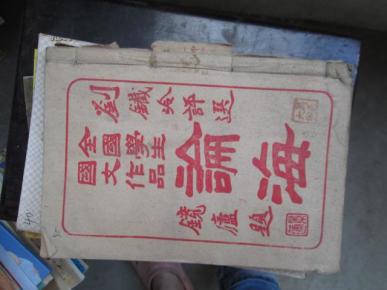 劉鐵冷評選
全國學生
國文作品
論海
鏡廬題